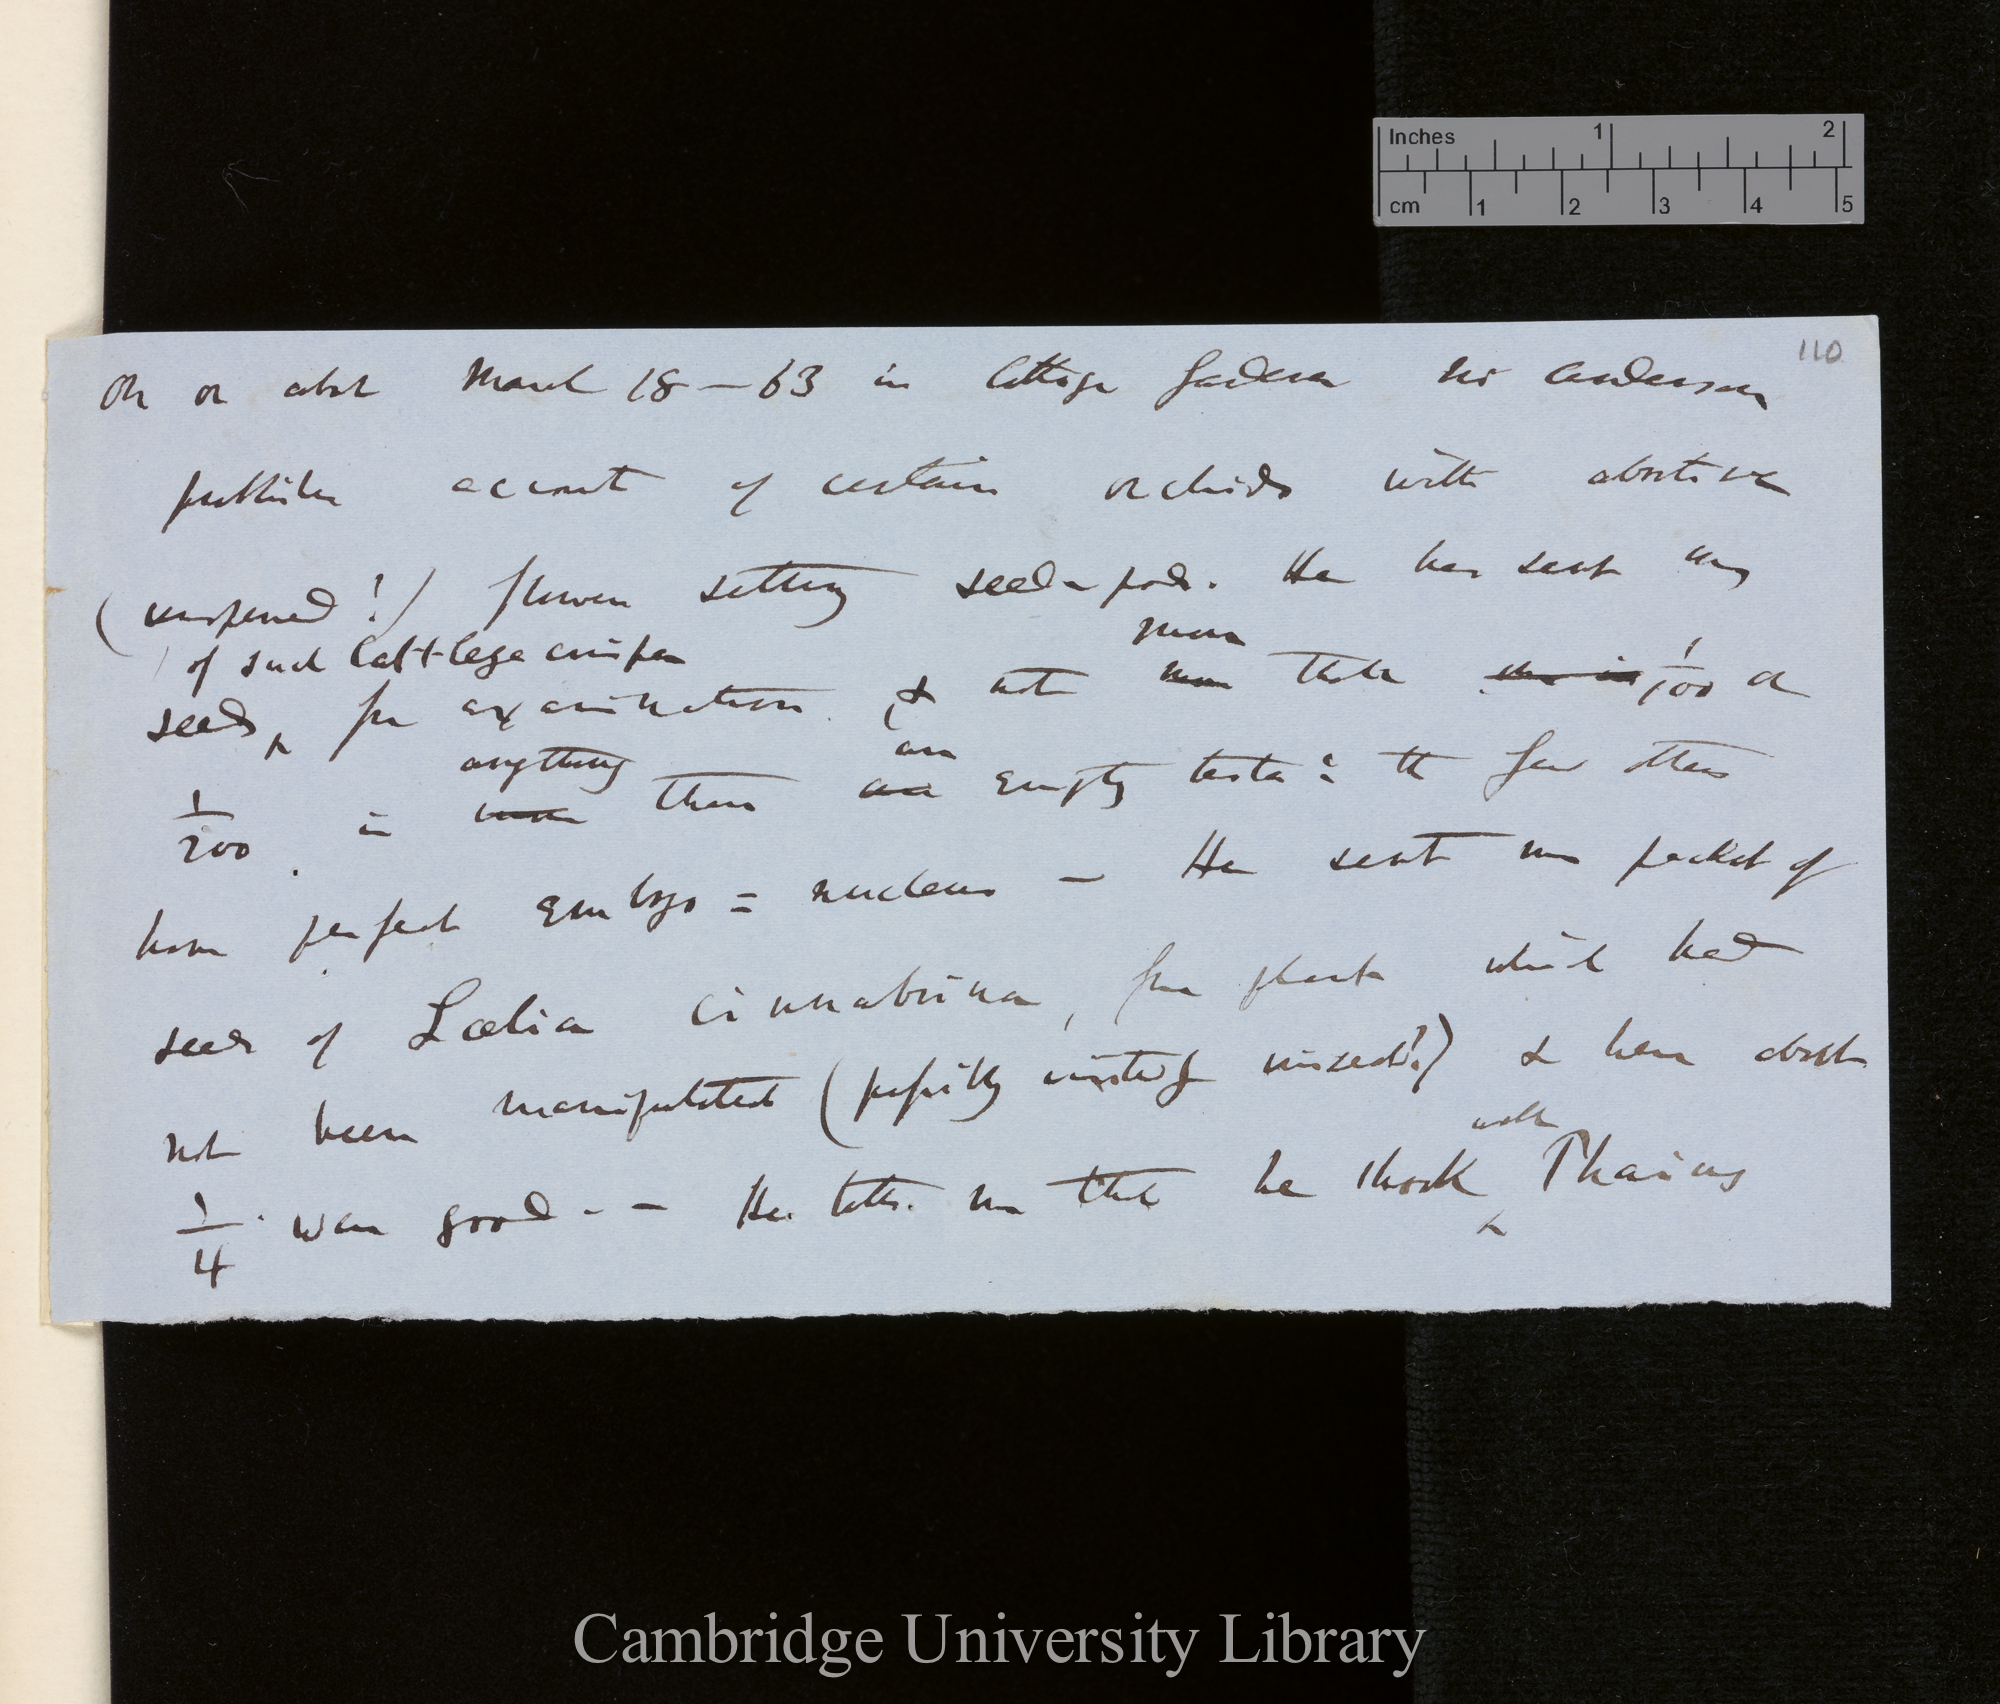 Inches 1 2
cm 1 2 3 4 5
110
On or about March 18 — 63 in Cottage Gardener Mr Anderson
publishes account of certain orchids with abortive
(unopened?) flowers setting seed-pods. He has sent me
of such Cattleya crispa
more
seeds for examination & not more than 1/100 or
anything an
1/200 is than an empty testa: the few others
have perfect embryo = nucleus — He sent me packet of
seeds of Lælia cinnabrina, from plant which had
not been manipulated (possibly visited by insect?) & here about
with
1/4 were good — He tells me that he shook Phaius
Cambridge University Library